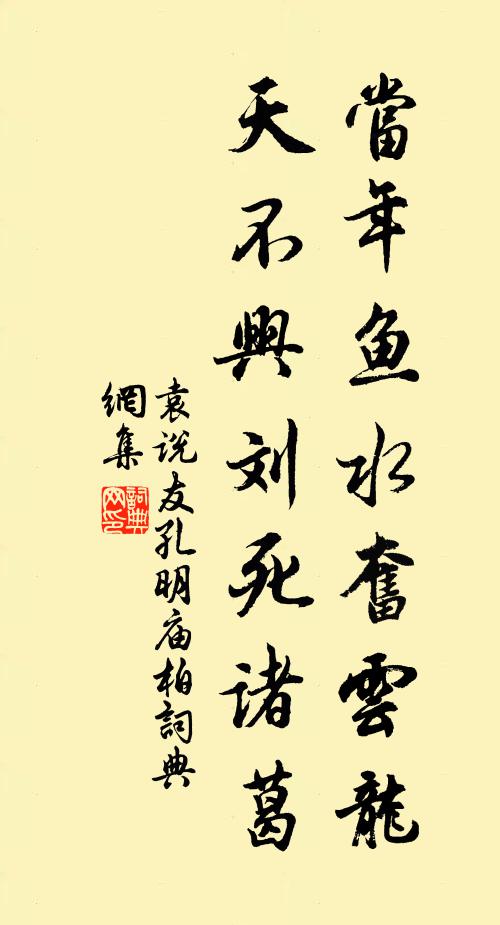 當年鱼水奮雲龍
天不興刘死诸葛
袁说友孔明庙柏詞典
網集
詞典
网印